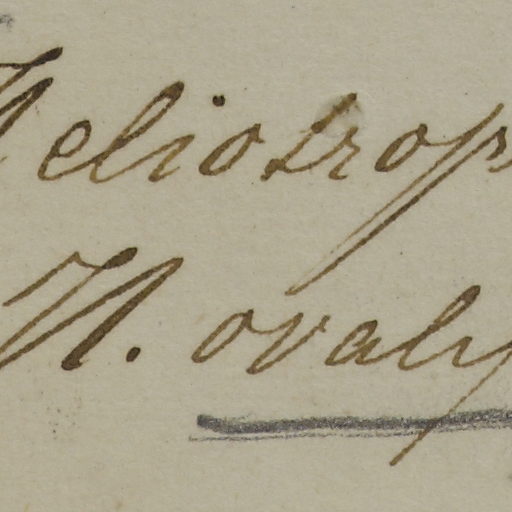 Heliotrop
H. ovalif